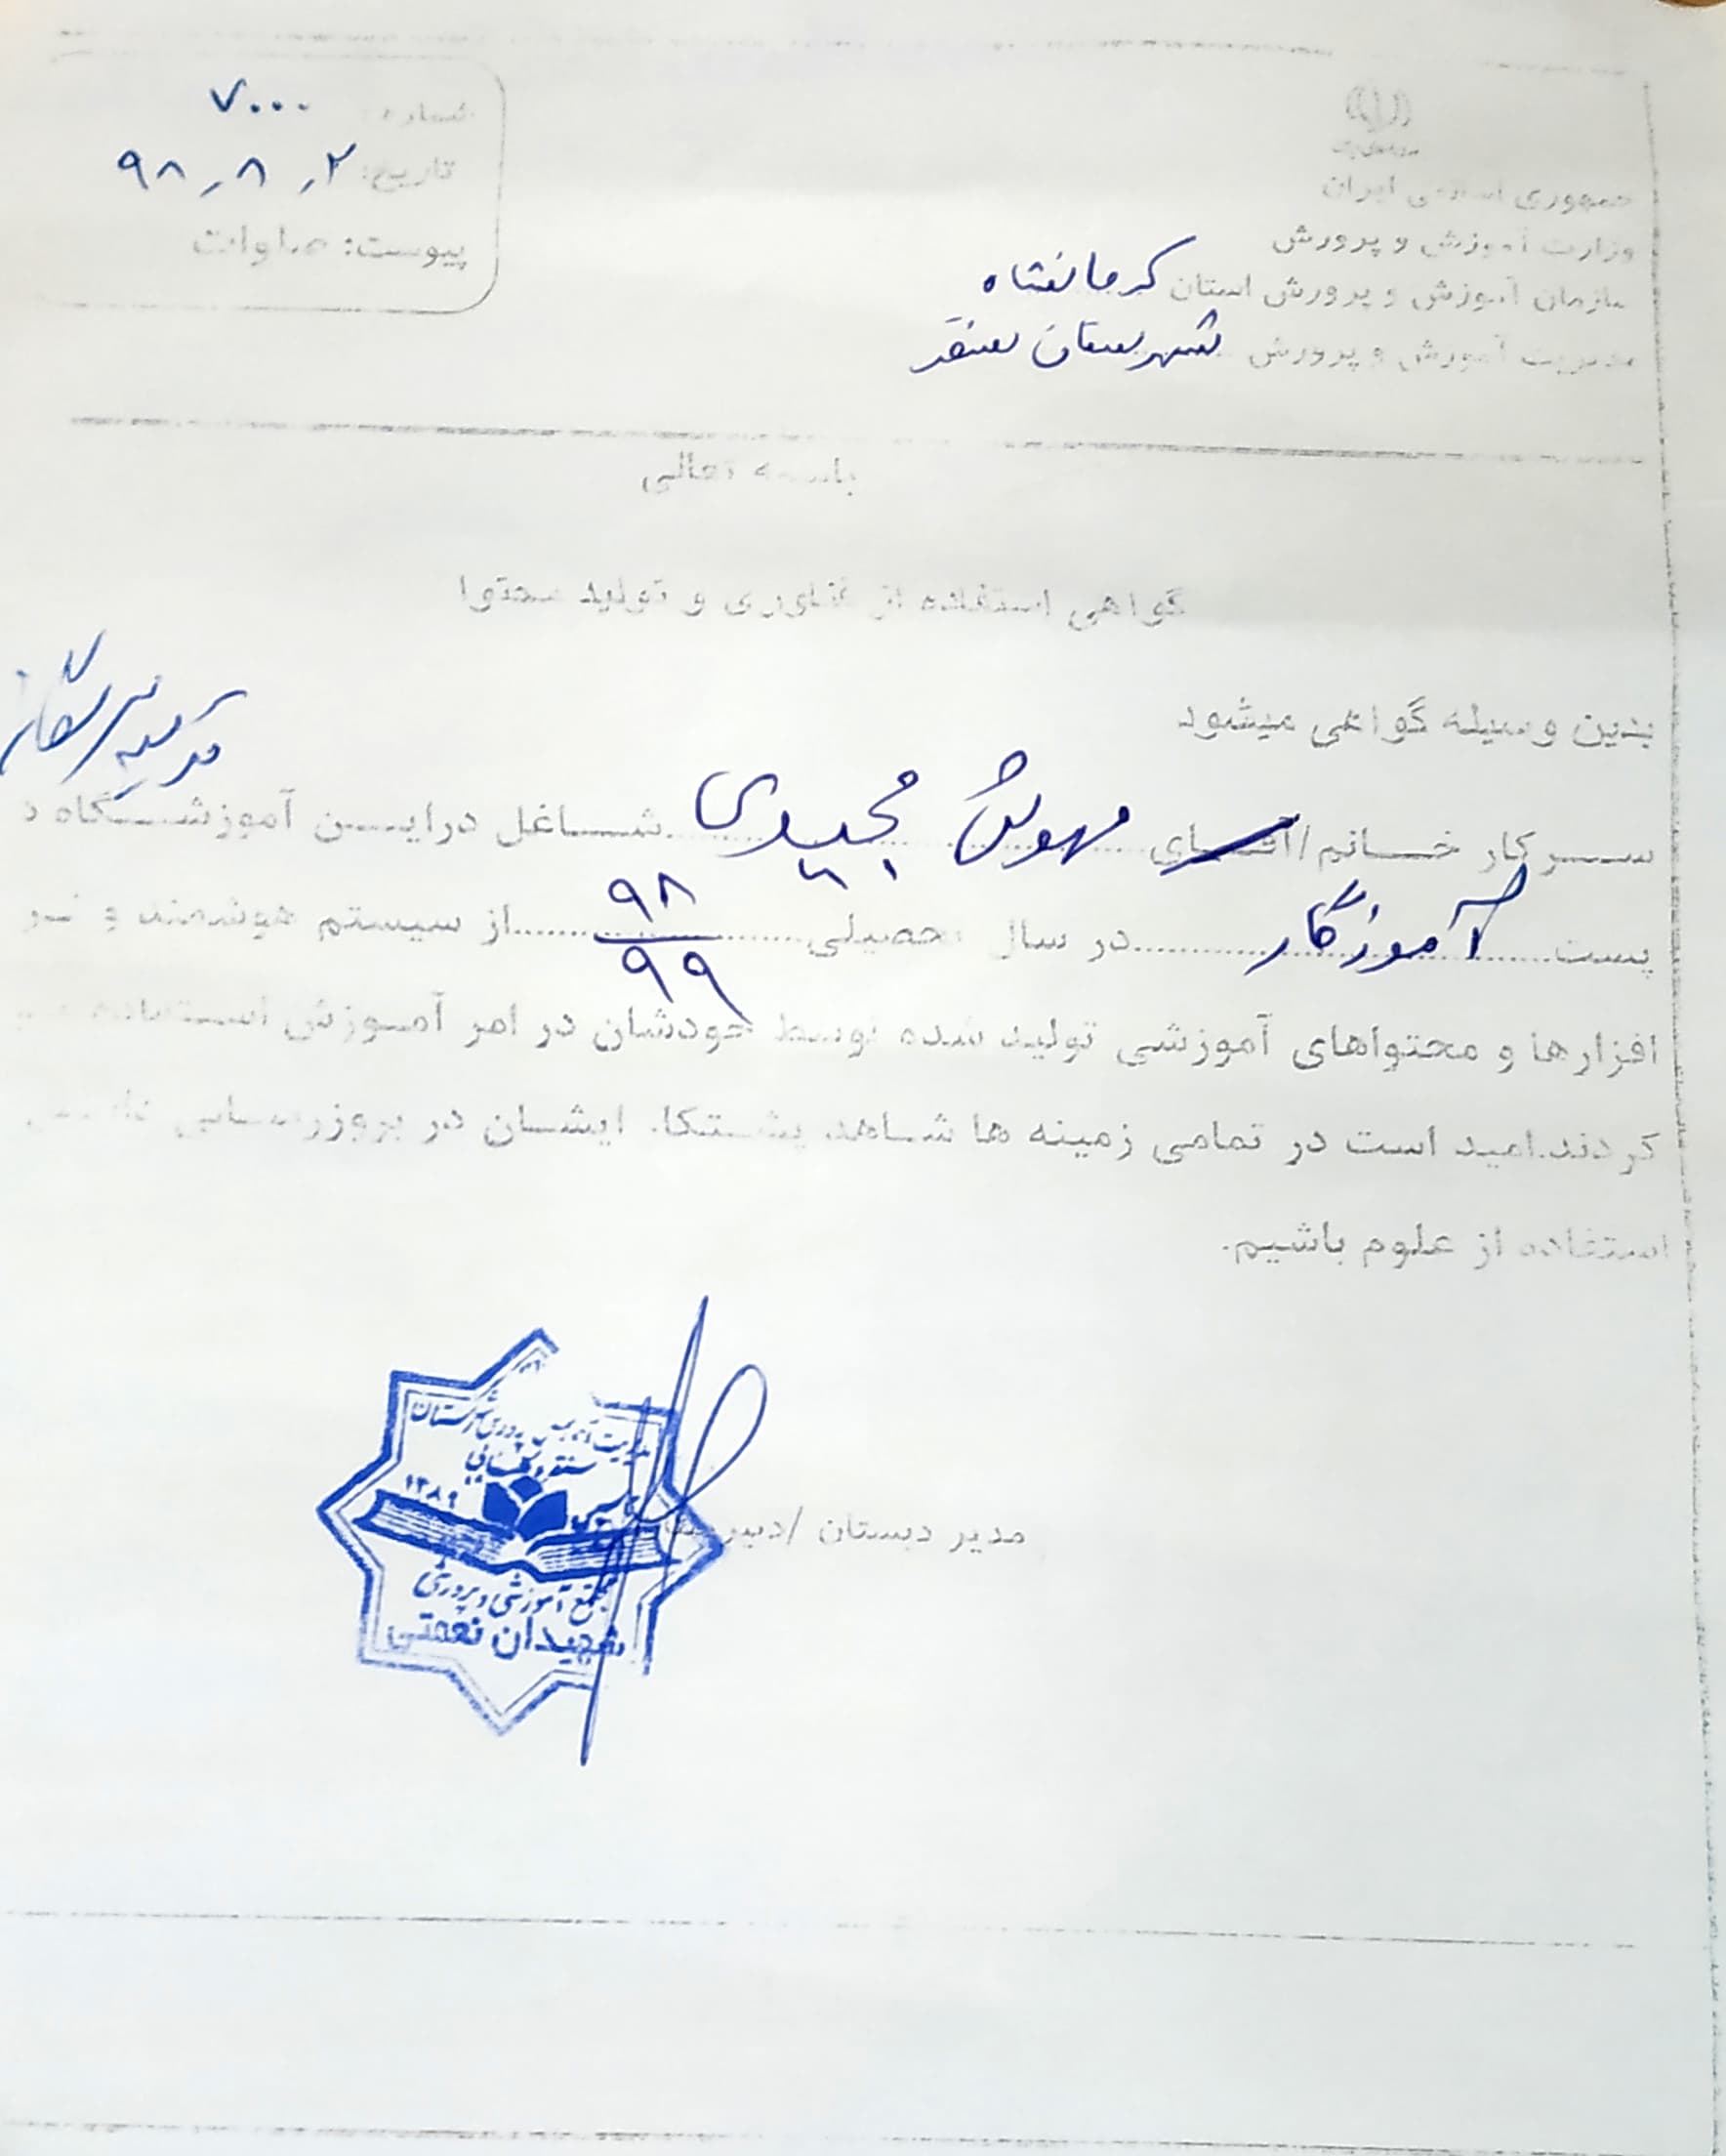 شماره: ۷۰۰۰
تاریخ: ۹۸٫۸٫۲
پیوست:
جمهوری اسلامی ایران
وزارت آموزش و پرورش
سازمان آموزش و پرورش استان کرمانشاه
مدیریت آموزش و پرورش شهرستان سنقر
باسمه تعالی
گواهی استفاده از فناوری و تولید محتوا
بدین وسیله گواهی میشود
سرکار خانم/آقای مهوش مجیدی شاغل دراین آموزشگاه د
پست آموزگار در سال تحصیلی ۹۸/۹۹ از سیستم هوشمند و نر
افزارها و محتواهای آموزشی تولید شده توسط خودشان در امر آموزش استفاده
کردند.امید است در تمامی زمینه ها شاهد پشتکار ایشان در بروزرسانی
استفاده از علوم باشیم.
مدیریت آموزش و پرورش شهرستان
سنقر و کلیایی
۱۳۸۹
مدیر دبستان /دبیرستان
مجتمع آموزشی و پرورشی
شهیدان نعمتی